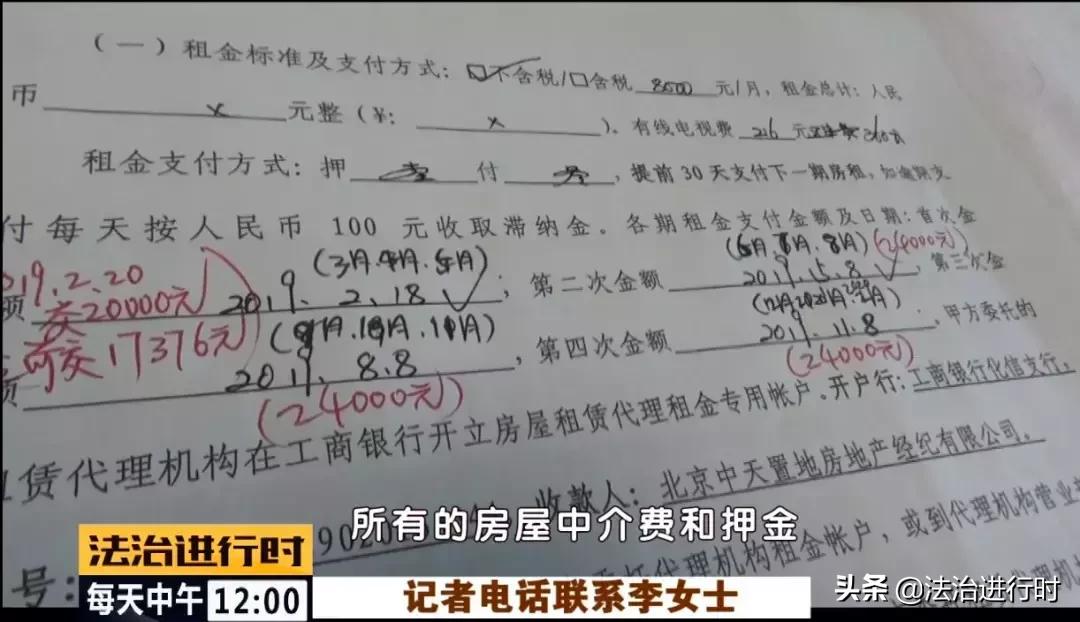 （一）租金标准及支付方式：☑不含税/□含税 8000 元/月，租金总计：人民
币 × 元整（￥： × ）。有线电视费 216 元
租金支付方式：押 付 ，提前30天支付下一期房租，如逾期支
付每天按人民币 100 元收取滞纳金。各期租金支付金额及日期：首次金
(3月.4月.5月)
(6月.7月.8月) (24000元)
2019.2.20
额 交20000元 2019.2.18 ✓ ；第二次金额 2019.5.8 ✓ ，第三次金
交17376元
(9月.10月.11月)
额 2019.8.8 ，第四次金额 2019.11.8 ，甲方委托的
(24000元)
(24000元)
赁代理机构在工商银行开立房屋租赁代理租金专用帐户。开户行：工商银行化信支行。
号： 902 收款人：北京中天置地房地产经纪有限公司。
代理机构租金帐户，或到代理机构营业
所有的房屋中介费和押金
法治进行时
每天中午 12:00
记者电话联系李女士
头条 @法治进行时